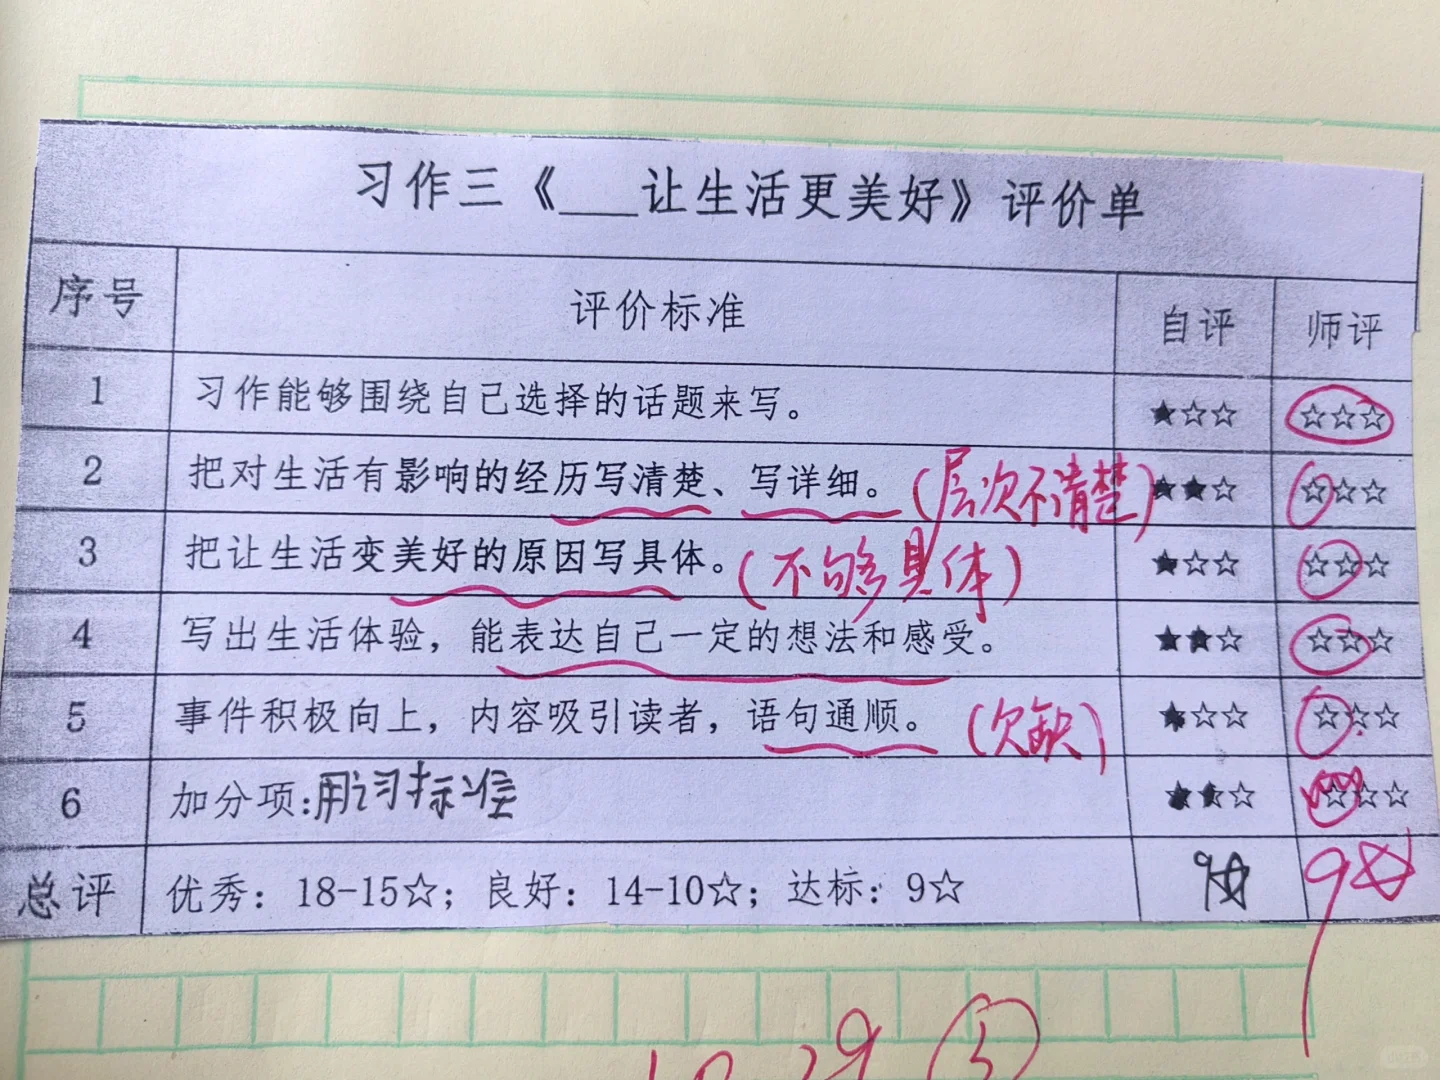 习作三《___让生活更美好》评价单
序号 评价标准 自评 师评
1 习作能够围绕自己选择的话题来写。 ★☆☆ ☆☆☆
2 把对生活有影响的经历写清楚、写详细。(层次不清楚) ★★☆ ☆☆☆
3 把让生活变美好的原因写具体。(不够具体) ★☆☆ ☆☆☆
4 写出生活体验，能表达自己一定的想法和感受。 ★★☆ ☆☆☆
5 事件积极向上，内容吸引读者，语句通顺。(欠缺) ★☆☆ ☆☆☆
6 加分项:用词标准 ★★☆ ☆☆☆
总评 优秀：18-15☆；良好：14-10☆；达标：9☆ 9☆ 9☆